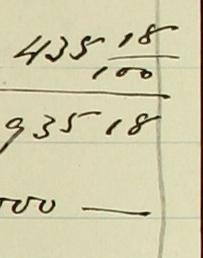 435 18/100
935 18
000 —